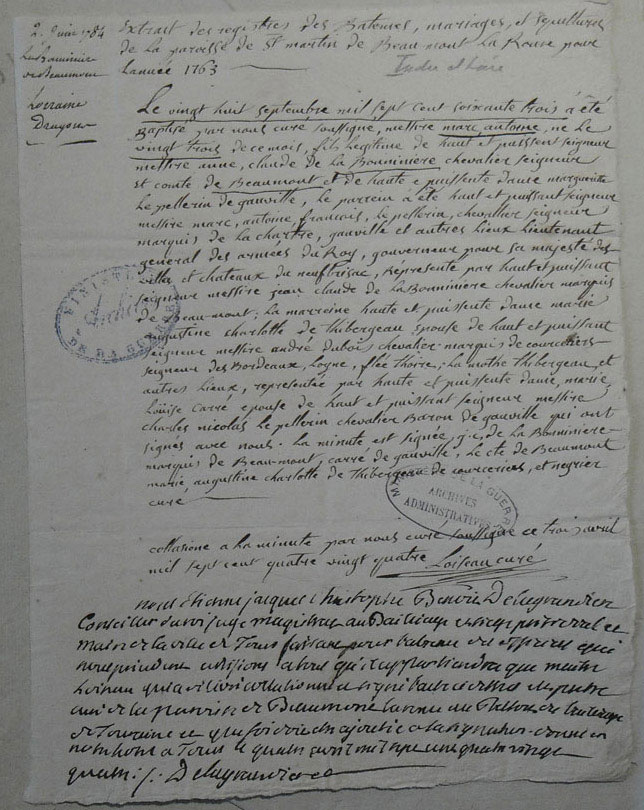 2. Juin 1784
Extrait des registres des Batemes, mariages, et sepultures
de la paroisse de St martin de Beaumont la Ronce pour
Lannée 1763
Indre et Loire
Lorraine
Dragons
Le vingt huit septembre mil sept cent soixante trois à été
Baptisé par nous curé soussigné, messire marc, antoine, né le
vingt trois de ce mois, fils legitime de haut et puissant seigneur
messire anne, claude de la Bonniniere chevalier seigneur
et comte de Beaumont et de haute e puissente dame marguerite
Le pellerin de gauville, Le parrein a été haut et puissant seigneur
messire marc, antoine, francois, Le pellerin, chevalier seigneur
marquis de la chartre, gauville et autres Lieux Lieutenant
general des armées du Roy, gouverneur pour sa majesté des
ville et chateaux du neufbrisac, Représenté par haut et puissant
seigneur messire jean claude de la Bonniniere chevalier marquis
de Beaumont; La marreine haute et puissente dame marie
augustine charlotte de Thibergeau epouse de haut et puissant
seigneur messire andré dubois chevalier marquis de courceriers
seigneur des Bordeaux, Logne, flée Thoire, La mothe Thibergeau et
autres Lieux, representée par haute et puissente dame, marie
Louise Carré epouse de haut et puissant seigneur messire
charles nicolas Le pellerin chevalier Baron de gauville qui ont
signés avec nous. La minute est signée j. c. de la Bonniniere
marquis de Beaumont, carré de gauville, Le cte de Beaumont
marie, augustine charlotte de Thibergeau de courceriers, et negrier
curé
MINISTÈRE DE LA GUERRE
Archives
MINISTÈRE DE LA GUERRE
ARCHIVES
ADMINISTRATIVES
collationé a la minute par nous curé soussigné ce trois avril
mil sept cent quatre vingt quatre Loiseau curé
nous Etienne jacques christophe Benoist Delagrandiere
Conseiller du roi juge magistrat au Bailliage et siege presidial
maire de la ville de Tours
de la paroisse de Beaumont la ronce
de Touraine et que foi doit etre ajoutée a sa signature. donné en
notre hotel a Tours le quatre avril mil sept cent quatre vingt
quatre ·/· Delagrandiere